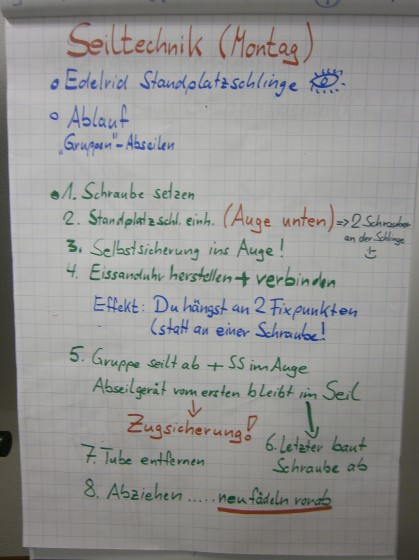 Seiltechnik (Montag)
Edelrid Standplatzschlinge
Ablauf
„Gruppen"-Abseilen
1. Schraube setzen
2. Standplatzschl. einh. (Auge unten) => 2 Schrauben
an der Schlinge
3. Selbstsicherung ins Auge!
4. Eissanduhr herstellen + verbinden
Effekt: Du hängst an 2 Fixpunkten
(statt an einer Schraube!
5. Gruppe seilt ab + SS im Auge
Abseilgerät vom ersten bleibt im Seil
Zugsicherung!
6. Letzter baut
Schraube ab
7. Tube entfernen
8. Abziehen ..... neu fädeln vorab